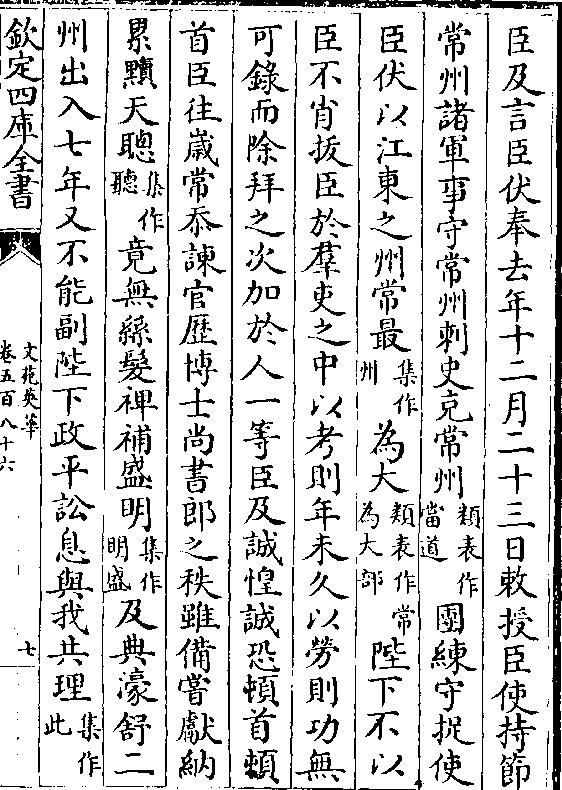 臣及言臣伏奉去年十二月二十三日敕授臣使持節
常州諸軍事守常州刺史充常州類表作當道團練守捉使
臣伏以江東之州常最集作州為大類表作常為大郡陛下不以
臣不肖拔臣於羣吏之中以考則年未久以勞則功無
可錄而除拜之次加於人一等臣及誠惶誠恐頓首頓
首臣往歲常忝諫官歷博士尚書郎之秩雖備嘗獻納
累黷天聰集作聽竟無絲髮裨補盛明集作明盛及典濠舒二
州出入七年又不能副陛下政平訟息與我共理集作此
欽定四庫全書
文苑英華
卷五百八十六
七